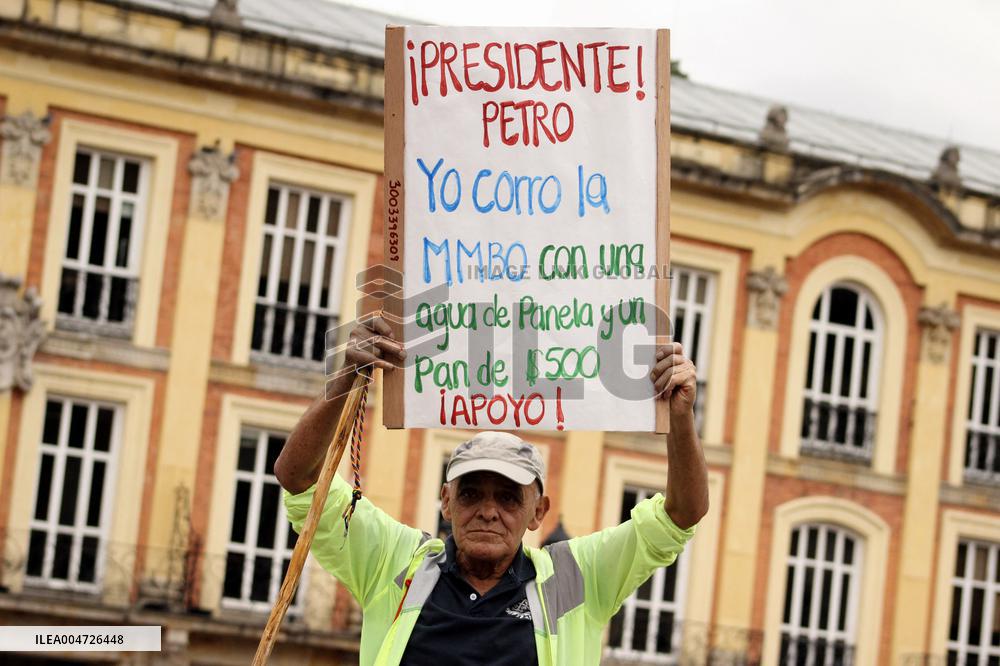 ¡PRESIDENTE!
PETRO
Yo corro la
MMBO con una
agua de Panela y un
Pan de $500
¡APOYO!
3003396309
IMAGE LINK GLOBAL
ILG
ILEA004726448